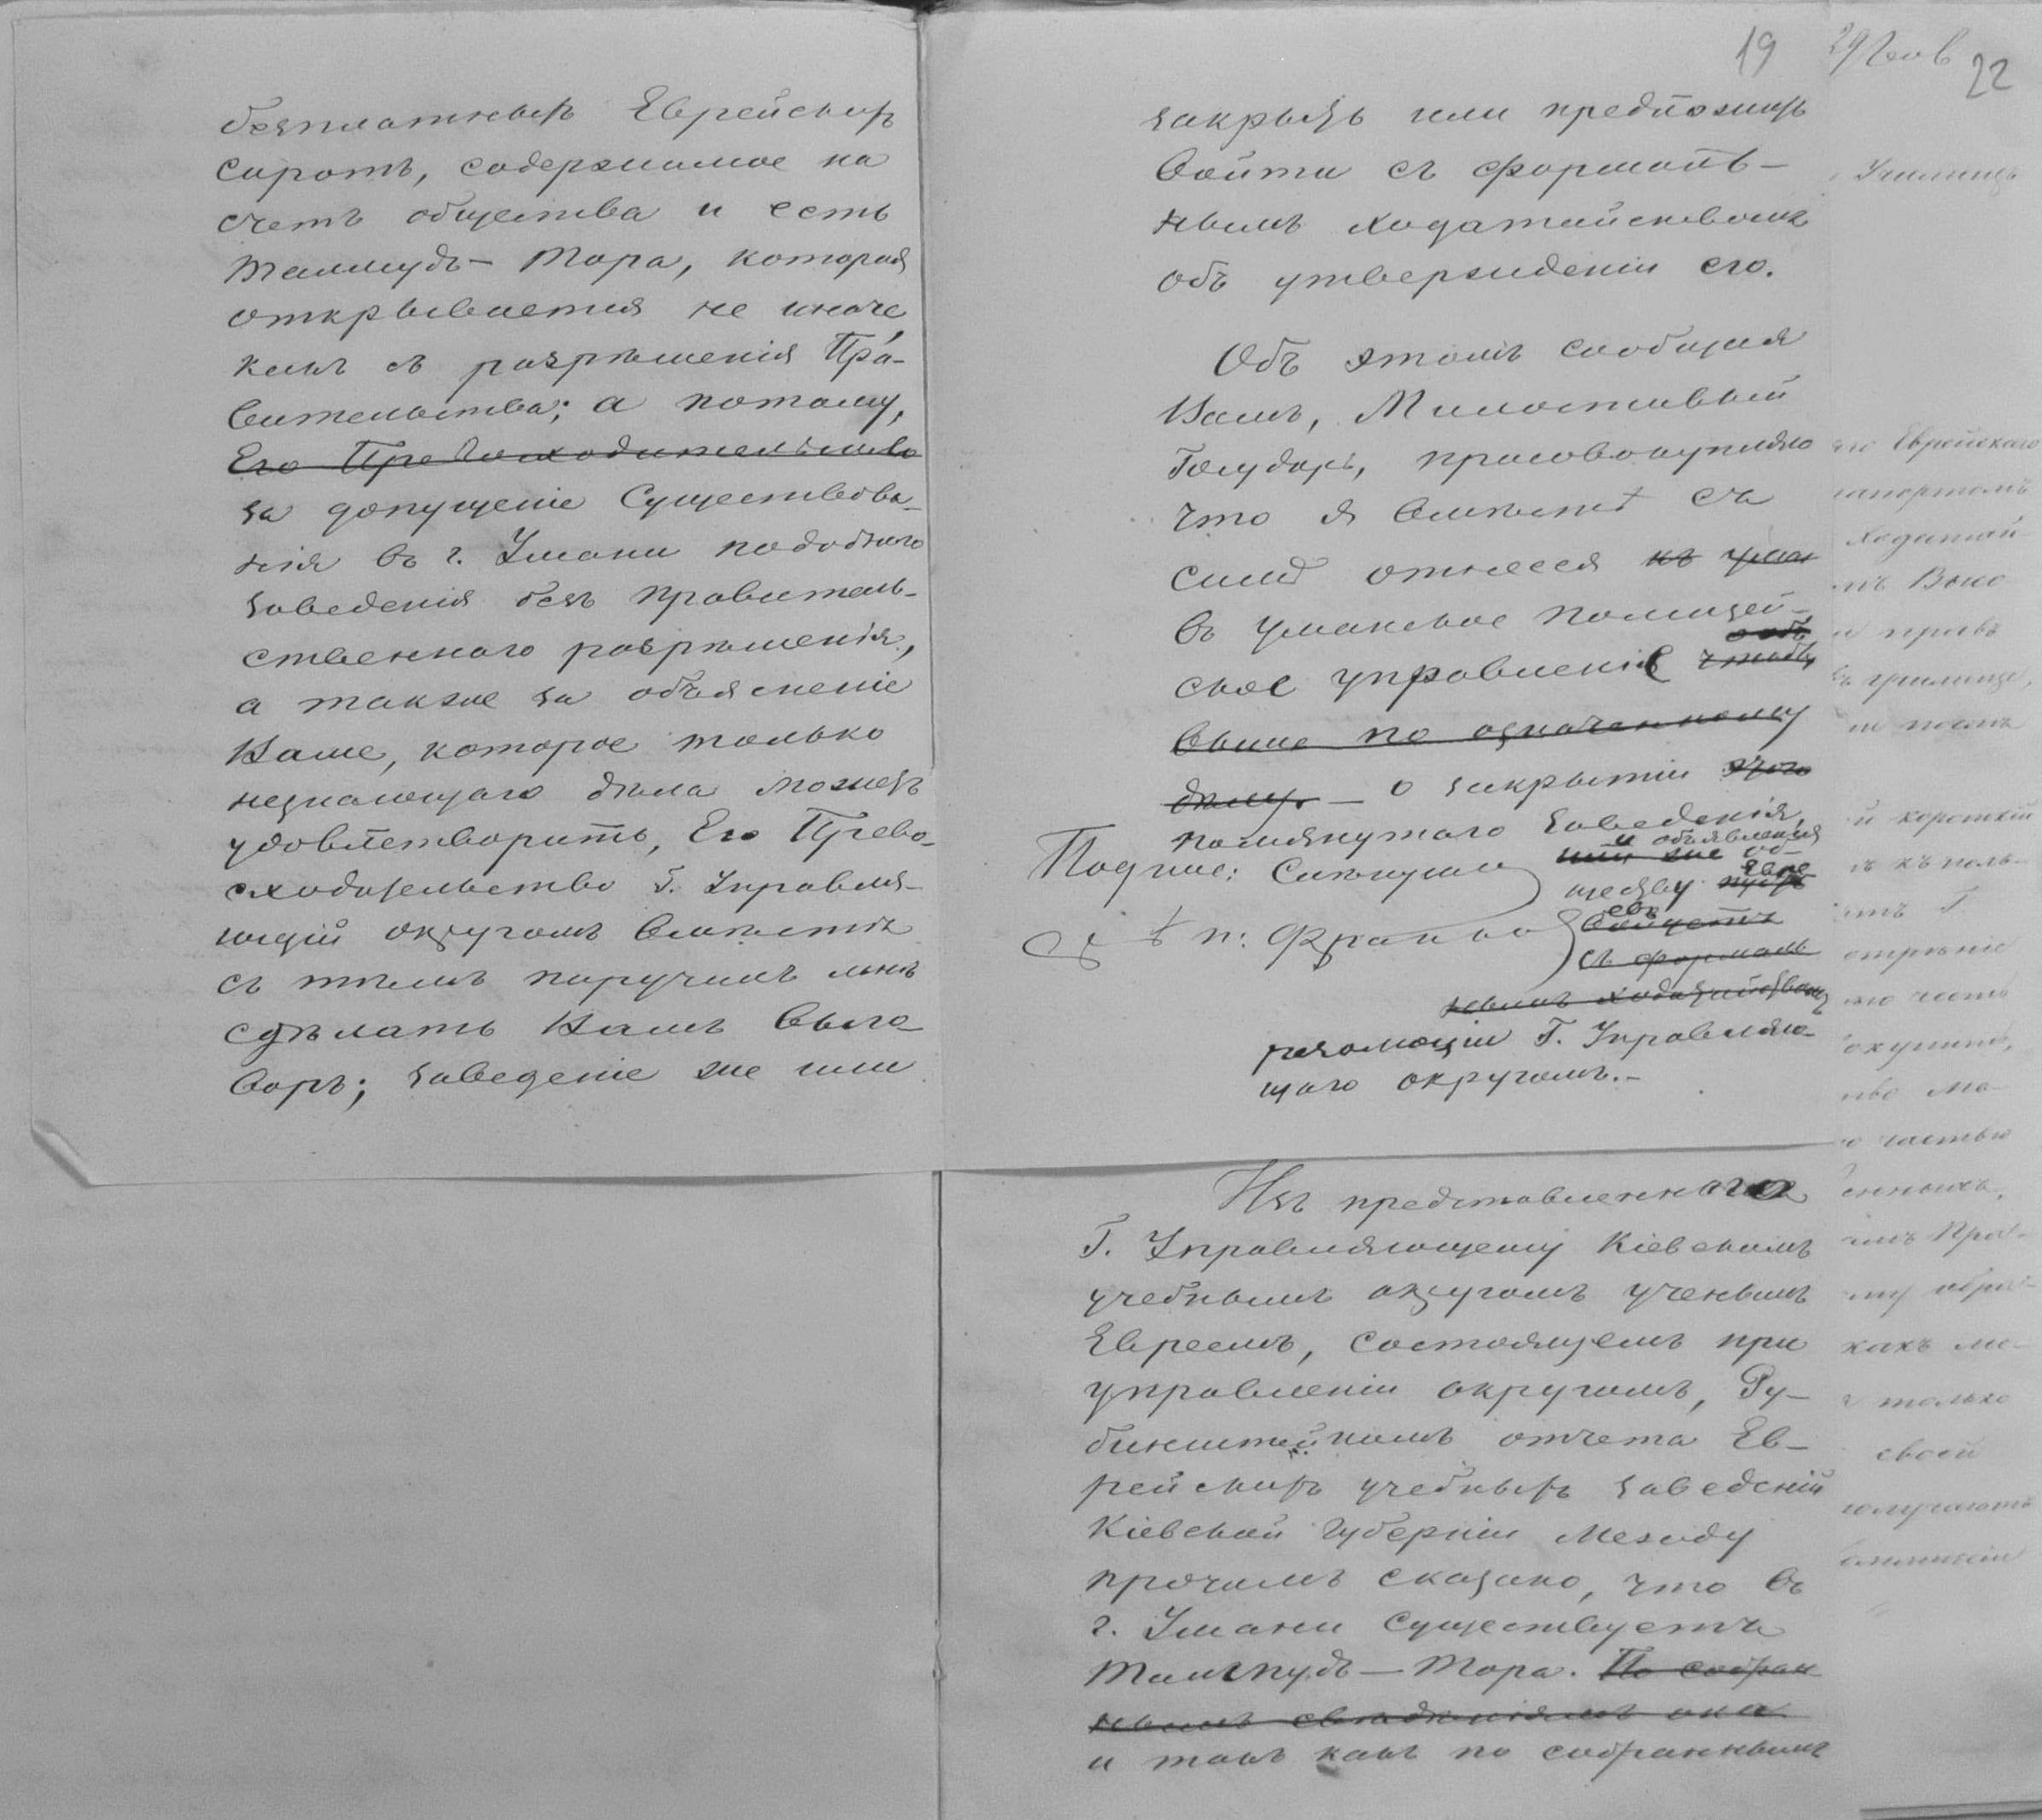 безплатныхъ Еврейскихъ
сиротъ, содержимое на
счетъ общества и есть
Талмудъ-Тора, которая
открывается не иначе
какъ съ разрѣшенія Пра-
вительства; а потому,
Его Превосходительство
за допущеніе существова-
нія въ г. Умани подобнаго
заведенія безъ правитель-
ственнаго разрѣшенія,
а также за объясненіе
Ваше, которое только
незнающаго дѣла можетъ
удовлетворить, Его Прево-
сходительство Г. Управля-
ющій округомъ вмѣстѣ
съ тѣмъ поручилъ мнѣ
сдѣлать Вамъ выго-
воръ; заведеніе же или
19
22
закрыть или предложить
войти съ формаль-
нымъ ходатайствомъ
объ утвержденіи его.
Объ этомъ сообщая
Вамъ, Милостивый
Государь, присовокупляю
что я вмѣстѣ съ
симъ отнесся къ Уман
въ Уманское полицей-
ское управленіе чтобы
объ
выше по означенному
дѣлу. — о закрытіи этого
помянутаго заведенія,
и объявленія
же об-
ществу
Евре
евъ
войдетъ
съ формаль
нымъ ходатайствомъ
резолюціи Г. Управляю-
щаго округомъ.-
Подпис:
Изъ представленнаго
Г. Управляющему Кіевскимъ
учебнымъ округомъ ученымъ
Евреемъ, состоящемъ при
управленіи округомъ, Ру-
бинштейномъ отчета Ев-
рейскихъ учебныхъ заведеній
Кіевской Губерніи между
прочимъ сказано, что въ
г. Умани существуетъ
Талмудъ-Тора. По собран
нымъ свѣденіямъ она
и такъ какъ по собраннымъ
Училищъ
Еврейскаго
училище,
короткій
Г.
часть
частью
какъ
только
своей